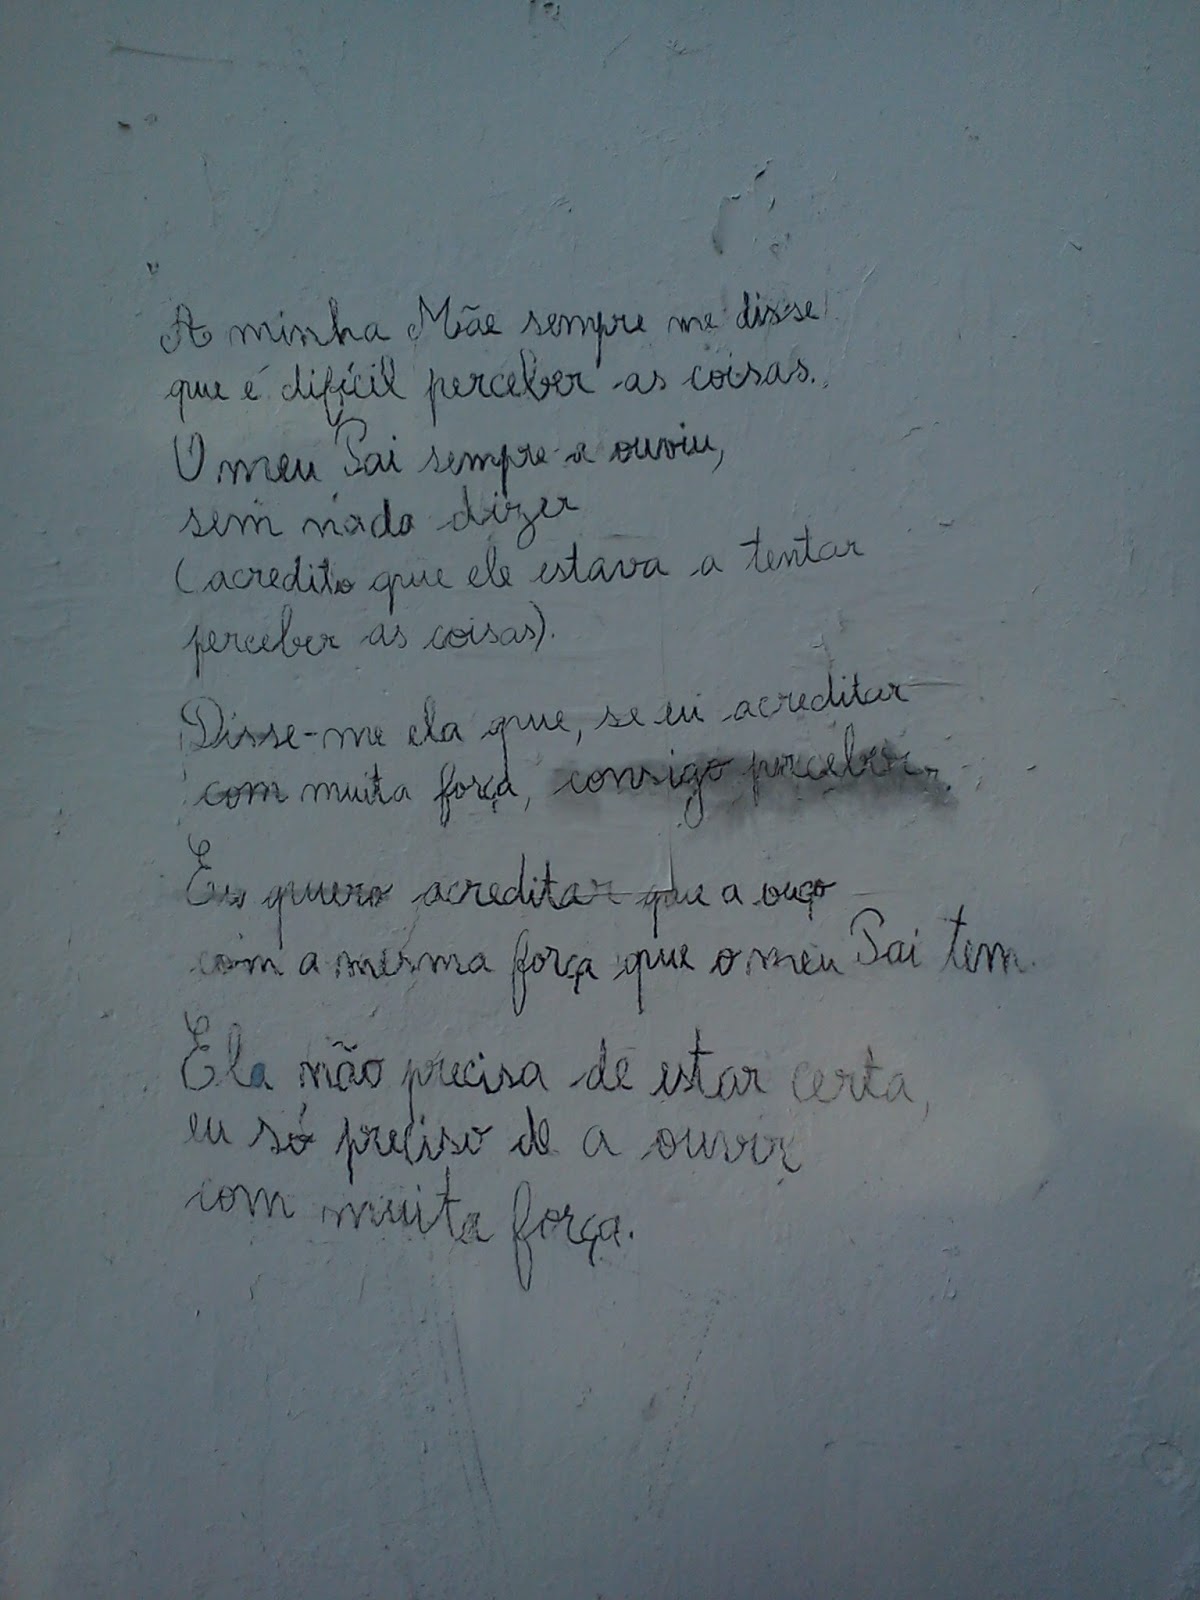 A minha Mãe sempre me disse
que é difícil perceber as coisas.
O meu Pai sempre a ouviu,
sem nada dizer
(acredito que ele estava a tentar
perceber as coisas).
Disse-me ela que, se eu acreditar
com muita força, consigo perceber.
Eu quero acreditar que a ouço
com a mesma força que o meu Pai tem.
Ela não precisa de estar certa,
eu só preciso de a ouvir
com muita força.